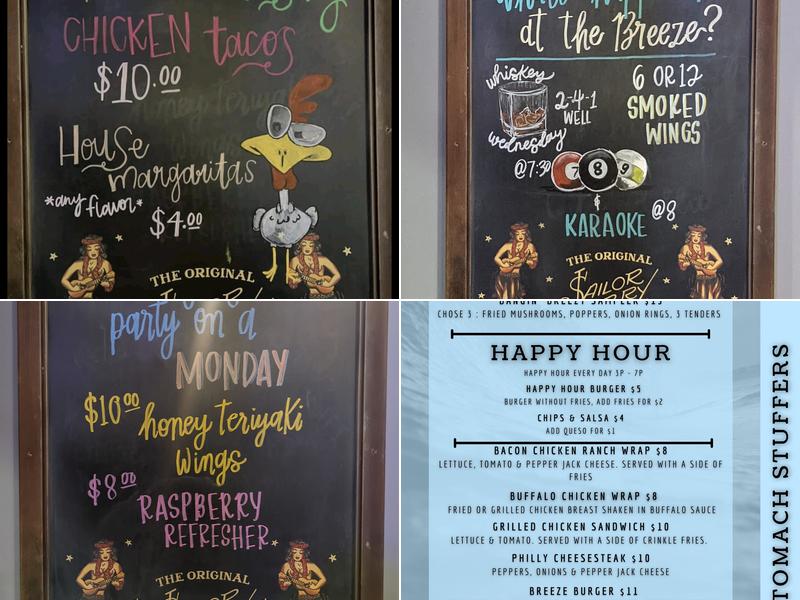 CHICKEN tacos
$10.00
House
margaritas
*any flavor*
$4.00
THE ORIGINAL
at the Breeze?
whiskey
wednesday
2-4-1
WELL
6 OR 12
SMOKED
WINGS
@7:30
7 8 9
&
KARAOKE @8
THE ORIGINAL
SAILOR
party on a
MONDAY
$10.00 honey teriyaki
wings
$8.00
RASPBERRY
REFRESHER
THE ORIGINAL
CHOSE 3 : FRIED MUSHROOMS, POPPERS, ONION RINGS, 3 TENDERS
HAPPY HOUR
HAPPY HOUR EVERY DAY 3P - 7P
HAPPY HOUR BURGER $5
BURGER WITHOUT FRIES, ADD FRIES FOR $2
CHIPS & SALSA $4
ADD QUESO FOR $1
BACON CHICKEN RANCH WRAP $8
LETTUCE, TOMATO & PEPPER JACK CHEESE. SERVED WITH A SIDE OF
FRIES
BUFFALO CHICKEN WRAP $8
FRIED OR GRILLED CHICKEN BREAST SHAKEN IN BUFFALO SAUCE
GRILLED CHICKEN SANDWICH $10
LETTUCE & TOMATO. SERVED WITH A SIDE OF CRINKLE FRIES.
PHILLY CHEESESTEAK $10
PEPPERS, ONIONS & PEPPER JACK CHEESE
BREEZE BURGER $11
TOMACH STUFFERS